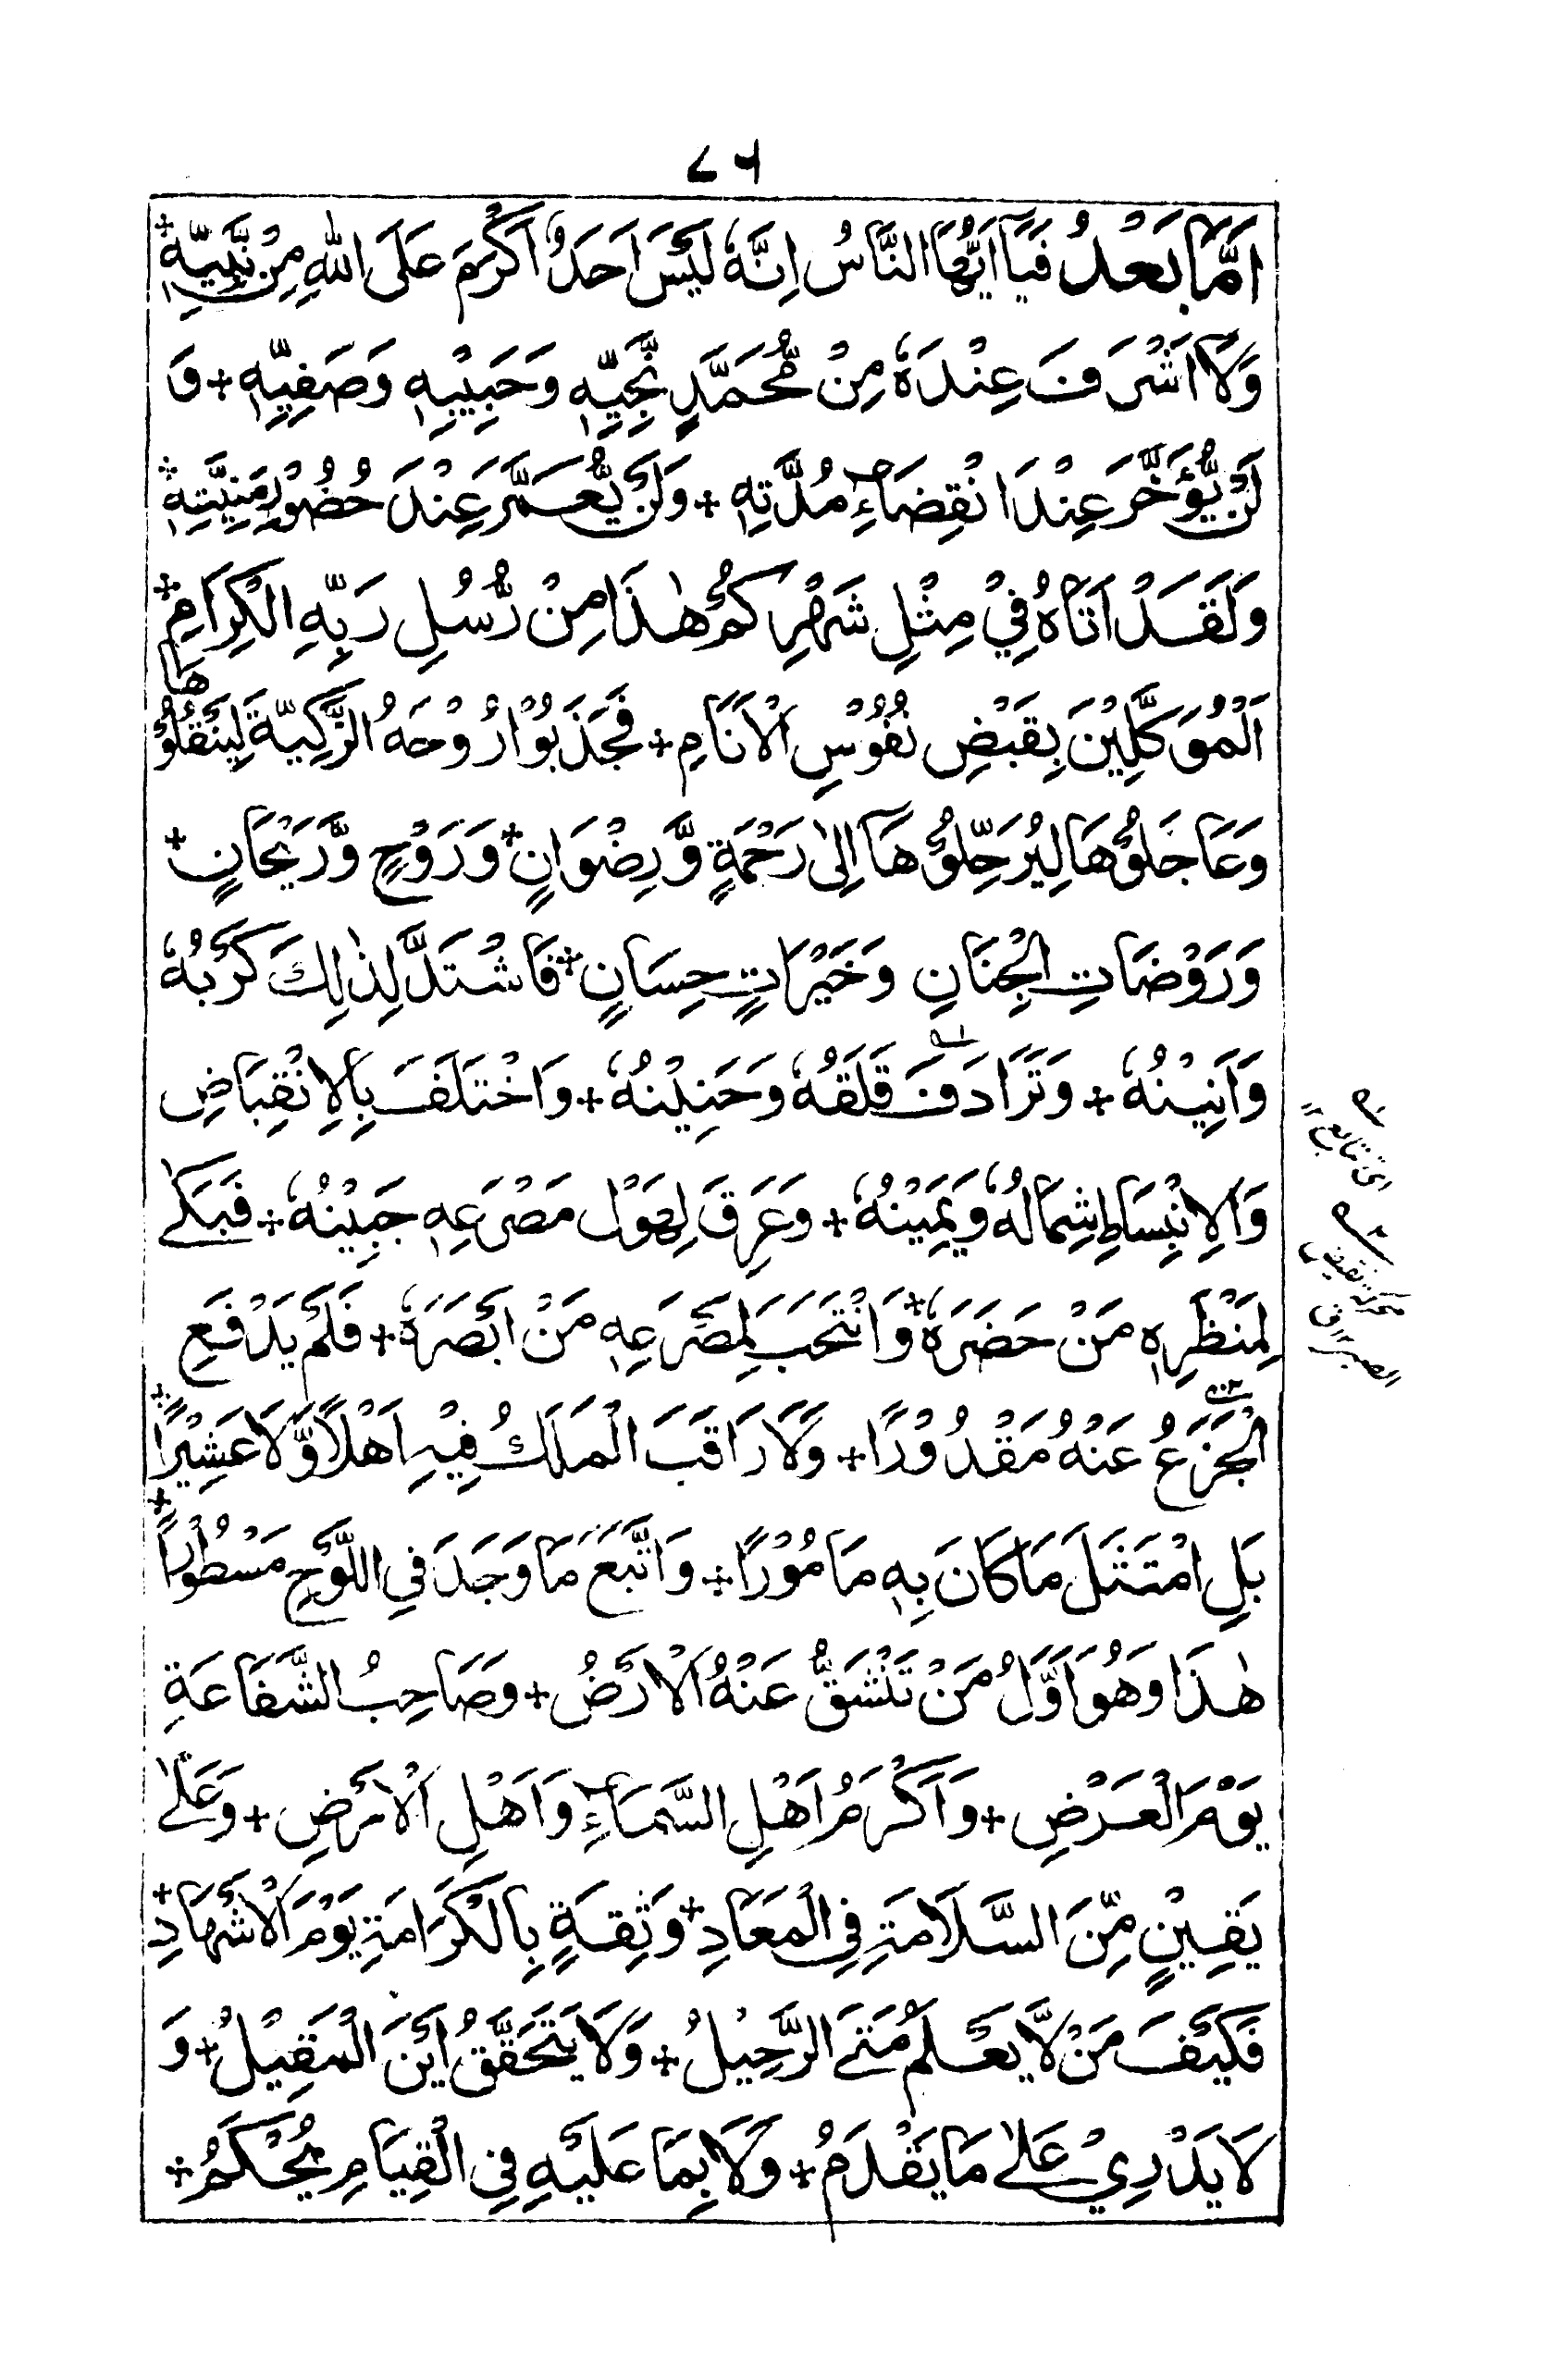 ٤٦
اَمَّا بَعْدُ فَيَآ اَيُّهَا النَّاسُ اِنَّهٗ لَيْسَ اَحَدٌ اَكْرَمَ عَلَى اللّٰهِ مِنْ نَّبِيِّهٖ +
وَلَا اَشْرَفَ عِنْدَهٗ مِنْ مُّحَمَّدٍ نَّجِيِّهٖ وَحَبِيْبِهٖ وَصَفِيِّهٖ + وَ
لَنْ يُّؤَخَّرَ عِنْدَ انْقِضَآءِ مُدَّتِهٖ + وَلَنْ يُّعَمَّرَ عِنْدَ حُضُوْرِ مَنِيَّتِهٖ +
وَلَقَدْ اَتَاهُ فِيْ مِثْلِ شَهْرِكُمْ هٰذَا مِنْ رُّسُلِ رَبِّهِ الْكِرَامِ +
اَلْمُوَكَّلِيْنَ بِقَبْضِ نُفُوْسِ الْاَنَامِ + فَجَذَبُوْا رُوْحَهُ الزَّكِيَّةَ لِيَنْقُلُوْهَا
وَعَاجَلُوْهَا لِيُرَحِّلُوْهَا اِلٰى رَحْمَةٍ وَّرِضْوَانٍ + وَرَوْحٍ وَّرَيْحَانٍ +
وَرَوْضَاتِ الْجِنَانِ وَخَيْرَاتٍ حِسَانٍ + فَاشْتَدَّ لِذٰلِكَ كَرْبُهٗ
وَاَنِيْنُهٗ + وَتَرَادَفَ قَلَقُهٗ وَحَنِيْنُهٗ + وَاخْتَلَفَ بِالْاِنْقِبَاضِ
وَالْاِنْبِسَاطِ شِمَالُهٗ وَيَمِيْنُهٗ + وَعَرِقَ لِهَوْلِ مَصْرَعِهٖ جَبِيْنُهٗ + فَبَكٰى
لِمَنْظَرِهٖ مَنْ حَضَرَهٗ + وَانْتَحَبَ لِمَصْرَعِهٖ مَنْ اَبْصَرَهٗ + فَلَمْ يَدْفَعِ
الْجَزَعُ عَنْهُ مَقْدُوْرًا + وَلَا رَاقَبَ الْمَلَكُ فِيْهِ اَهْلًا وَّلَا عَشِيْرًا +
بَلِ امْتَثَلَ مَا كَانَ بِهٖ مَامُوْرًا + وَاتَّبَعَ مَا وَجَدَ فِي اللَّوْحِ مَسْطُوْرًا +
هٰذَا وَهُوَ اَوَّلُ مَنْ تَنْشَقُّ عَنْهُ الْاَرْضُ + وَصَاحِبُ الشَّفَاعَةِ
يَوْمَ الْعَرْضِ + وَاَكْرَمُ اَهْلِ السَّمَآءِ وَاَهْلِ الْاَرْضِ + وَعَلٰى
يَقِيْنٍ مِّنَ السَّلَامَةِ فِي الْمَعَادِ + وَثِقَةٍ بِالْكَرَامَةِ يَوْمَ الْاَشْهَادِ +
فَكَيْفَ مَنْ لَّا يَعْلَمُ مَتَى الرَّحِيْلُ + وَلَا يَتَحَقَّقُ اَيْنَ الْمَقِيْلُ + وَ
لَا يَدْرِيْ عَلٰى مَا يَقْدَمُ + وَلَا بِمَا عَلَيْهِ فِي الْقِيَامِ يُحْكَمُ +
اى تتابع ١٢